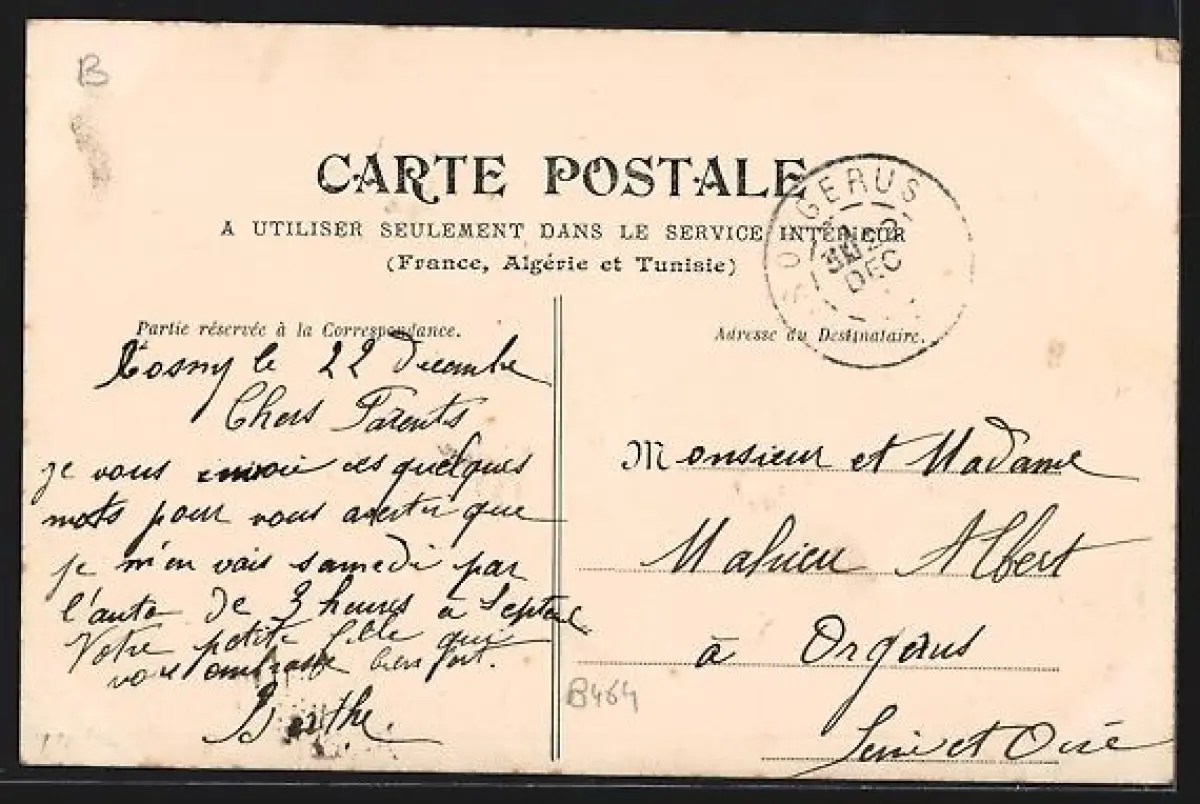 B
CARTE POSTALE
A UTILISER SEULEMENT DANS LE SERVICE INTÉRIEUR
(France, Algérie et Tunisie)
ORGERUS
DEC
Partie réservée à la Correspondance.
Adresse du Destinataire.
Rosny le 22 Décembre
Chers Parents
je vous envoie ces quelques
mots pour vous avertir que
je m'en vais samedi par
l'auto de 3 heures à Septeuil
Votre petite fille qui
vous embrasse bien fort.
Berthe.
Monsieur et Madame
Mahieu Albert
à Orgerus
Seine et Oise
B464